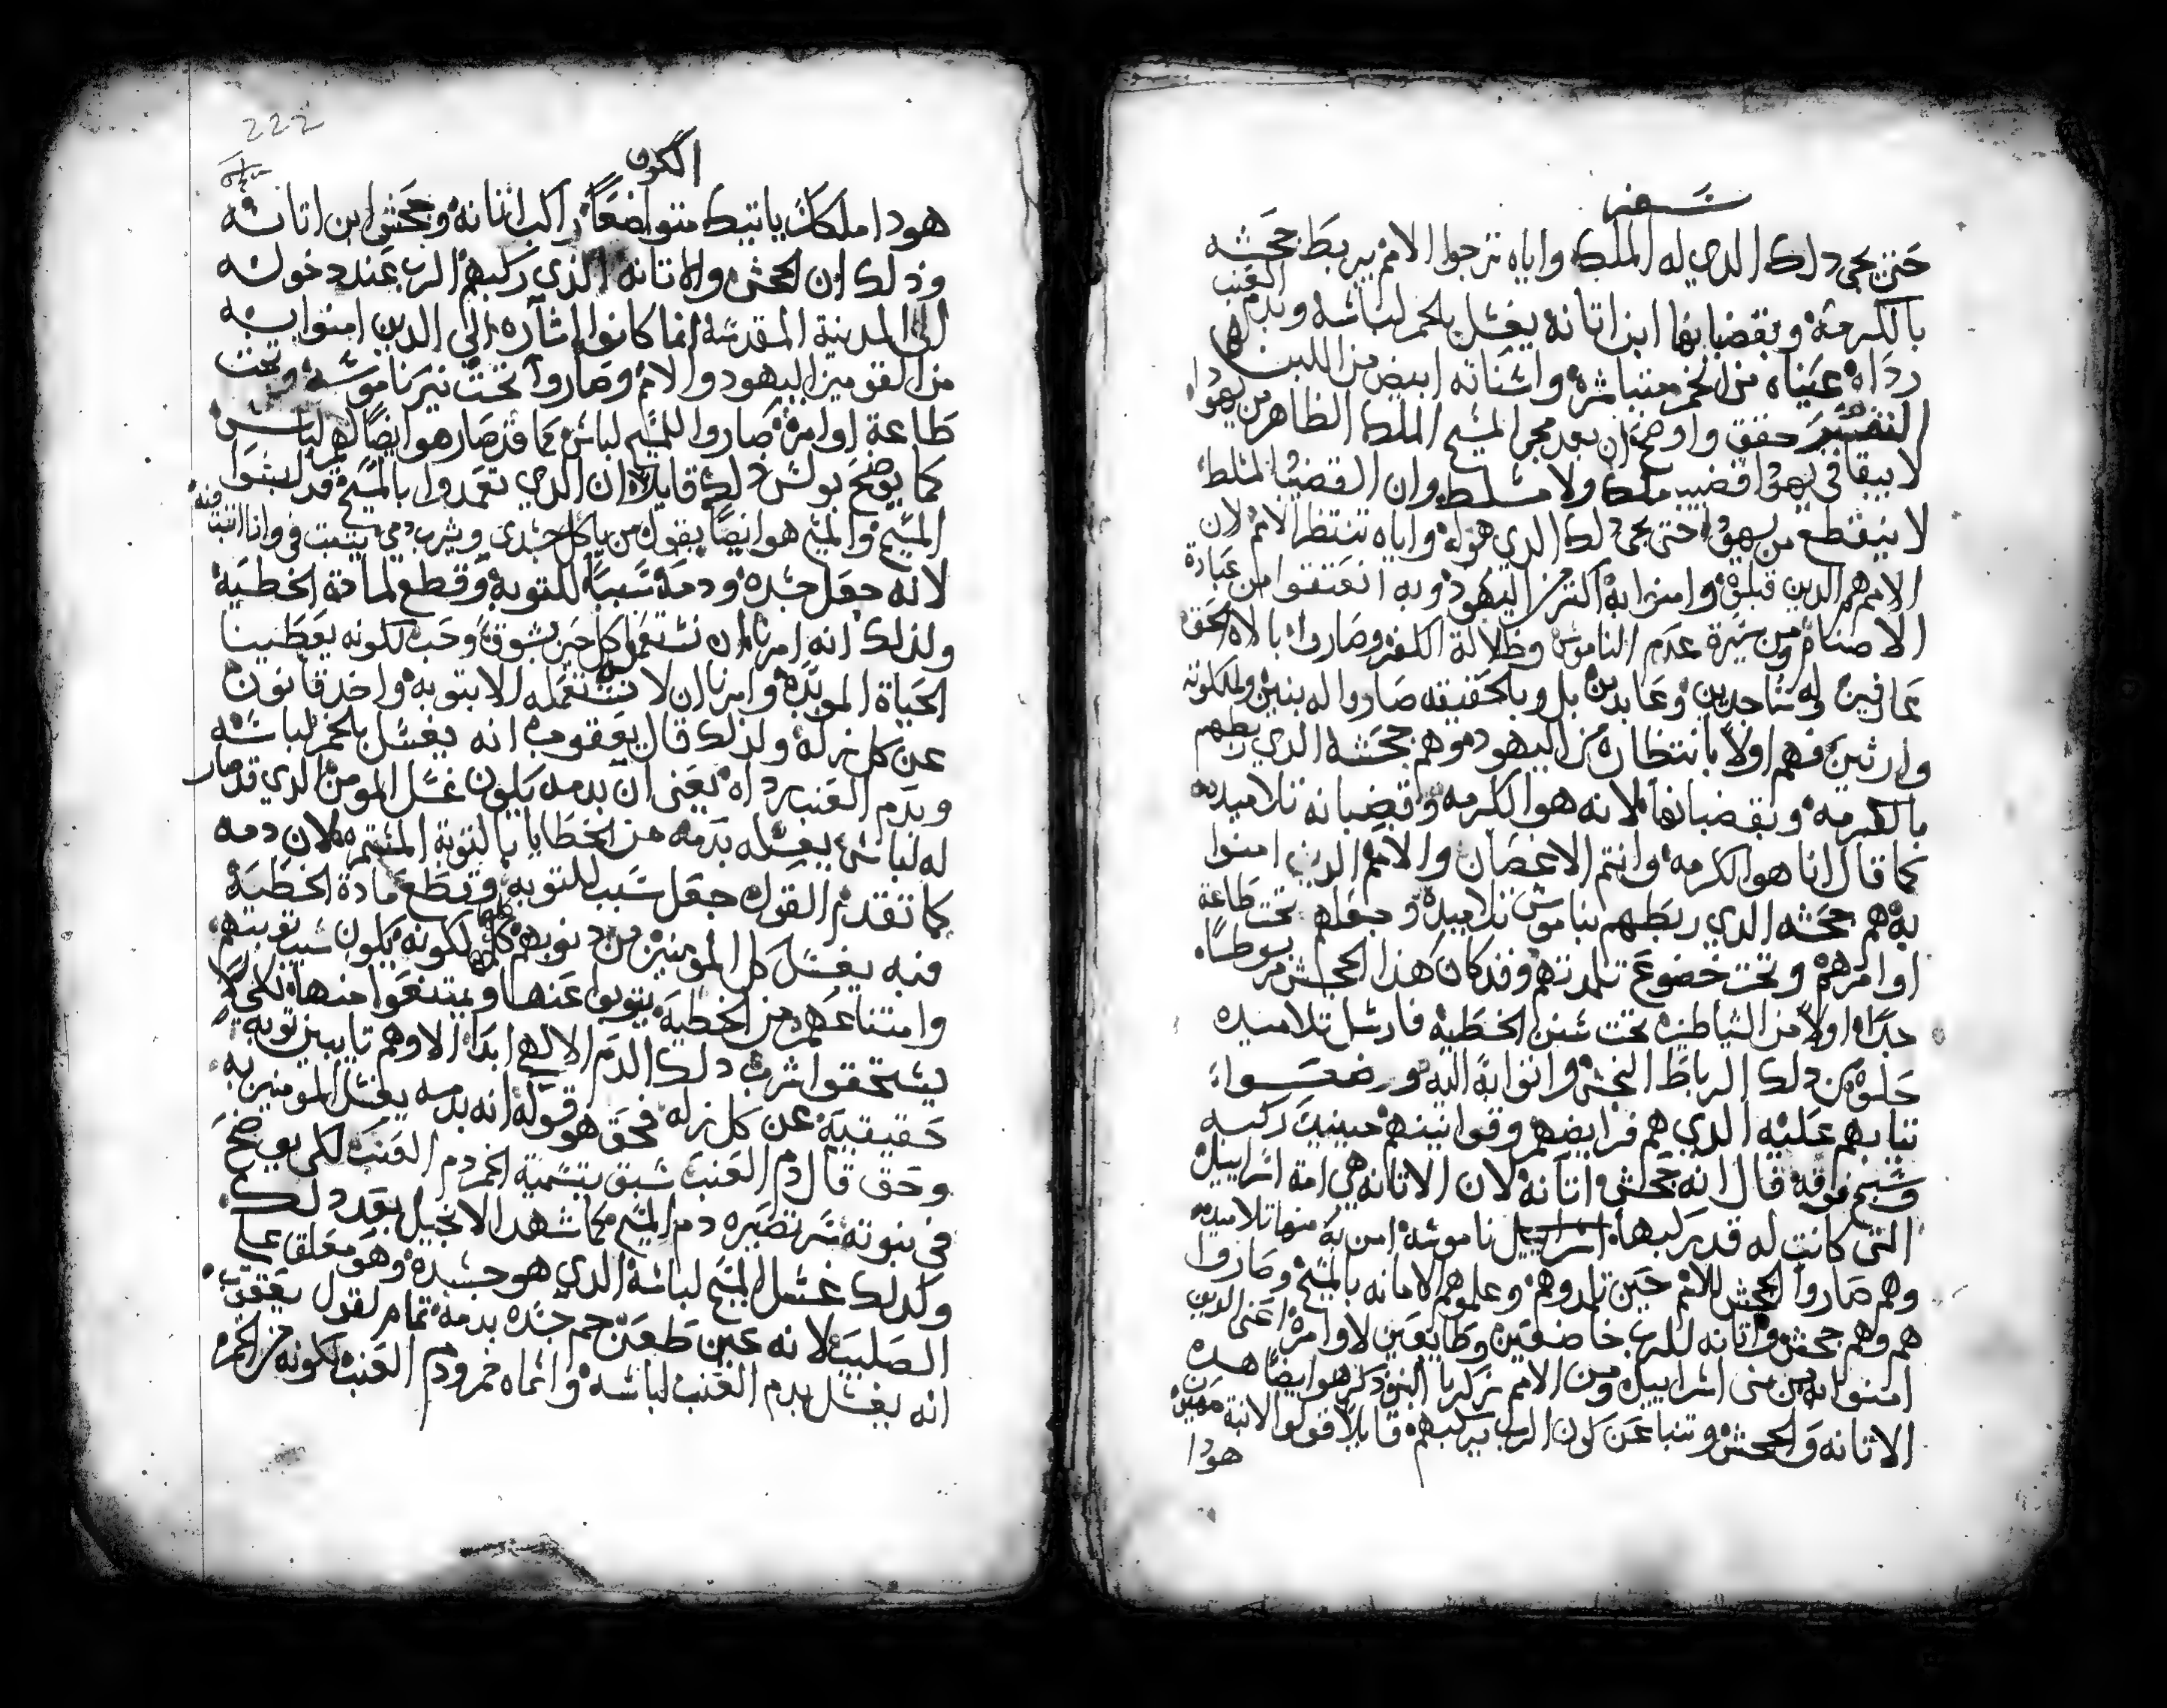 سفر
حتى يجى دلك الدي له الملك واياه ترجوا الامم يربط جحشه
بالكرمة وبقضبانها ابن اتانه يغسل بالخمر لباسه وبدم العنب
رداه عيناه من الخمر واسنانه ابيض من اللبن
التفسير حقق واوضح ان بعد مجى المسيح الملك الظاهر من يهودا
لا يبقا في يهودا قضيب ملك ولا مسلط وان القضيب المسلط
لا ينقطع من يهودا حتى يجى دلك الدي هو له واياه تنتظر الامم لان
الامم هم الدين قبلوه وامنوا به اكتر من اليهود وبه انعتقوا من عبادة
الاصنام ومن سيرة عدم الناموس وظلالة الكفر وصاروا بالاه الحق
عارفين له ساجدين وعابدين بل وبالحقيقه صاروا له بنين ولملكوته
وارثين فهم اولا بانتظاره من اليهود وهم جحشه الدي ربطهم
بالكرمه وبقضبانها لانه هو الكرمه وقضبانه تلاميده
كما قال انا هو الكرمه وانتم الاغصان والامم الدين امنوا
به هم جحشه الدي ربطهم بناموس تلاميده وجعلهم تحت طاعة
اوامرهم وتحت خضوع تلمدتهم وقد كان هذا الجحش مربوطا
جدا اولا من الشياطين تحت سنن الخطية فارسل تلاميده
حلوه من دلك الرباط النجس واتوا به اليه ورضعوا
تيابهم عليه الدي هم فرايضهم وقوانينهم حينيد ركبه
وسبح فوقه قال انه جحش واتانه لان الاتانه هي امة اسراييل
التى كانت له قد ركبها ناموسه امن به منها تلاميده
وهم صاروا الجحش للامم حين تلمدوهم وعلموهم الامانه بالمسيح وصاروا
هم وهم جحش واتانه للرب خاضعين وطايعين لاوامره اعنى الدين
امنوا به من بنى اسراييل ومن الامم زكريا النبى دكر هو ايضا هده
الاتانه والجحش وتنبا عن كون الرب يركبهم قايلا قولوا لابنة صهيون
هودا
222
الكون
هودا ملكك ياتيك متواضعا راكب اتانه وجحش ابن اتانه
وذلك ان الجحش والاتانه الذي ركبهم الرب عند دخوله
الى المدينة المقدسة انما كانوا اشاره الى الدين امنوا به
من القومين اليهود والامم وصاروا تحت نير ناموسه وتحت
طاعة اوامره صاروا للمسيح لباس كما قد صار هو ايضا لهم لباس
كما يوضح بولس دلك قايلا ان الدي تعمدوا بالمسيح قد لبسوا
المسيح والمسيح هو ايضا يقول من ياكل جسدي ويشرب دمي يتبت في وانا اتبت فيه
لانه جعل جسده ودمه سببا للتوبة وقطع لمادة الخطية
ولذلك انه امرنا ان نستعمل كل حين بشوق وحب لكونه يعطينا
الحياة الموبدة وامرنا ان لا نستعمله الا بتوبه واخد قانون
عن كل زله ولدلك قال يعقوب انه يغسل بالخمر لباسه
وبدم العنب رداه يعنى ان بدمه يكون غسل المومن الدي قد صار
له لباس يغسله بدمه من الخطايا بالتوبة المستمره لان دمه
كما تقدم القول جعل سبب للتوبه وقطع مادة الخطية
فبه يغسل كل المومنين من دنوبهم كلها لكونه يكون سبب توبتهم
وامتناعهم من الخطية يتوبوا عنها ويمتنعوا منها لكى لا
يستحقوا شرب دلك الدم الالهي ابدا الا وهم تايبين توبه
حقيقية عن كل زله فحق هو قوله انه بدمه يغسل المومنين به
وحق قال دم العنب سبق بتسمية الخمر دم العنب لكى يوضح
في نبوته سر تصيره دم المسيح كما شهد الانجيل بعد دلك
وكدلك غسل المسيح لباسه الدي هو جسده وهو معلق على
الصليب لانه حين طعن حم جسده بدمه تمام لقول يعقوب
انه يغسل بدم العنب لباسه وانماه خمر ودم العنب لكونه من الخمر